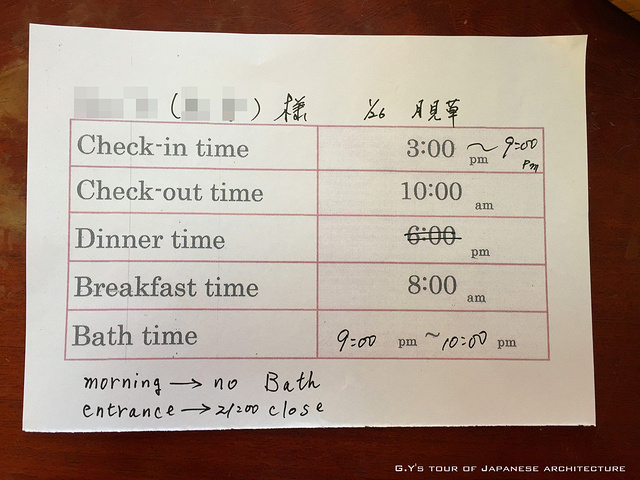 ( ) 様 1/26 月見草
Check-in time 3:00 pm ~ 9:00 pm
Check-out time 10:00 am
Dinner time 6:00 pm
Breakfast time 8:00 am
Bath time 9:00 pm ~ 10:00 pm
morning → no Bath
entrance → 21:00 close
G.Y's tour of Japanese architecture